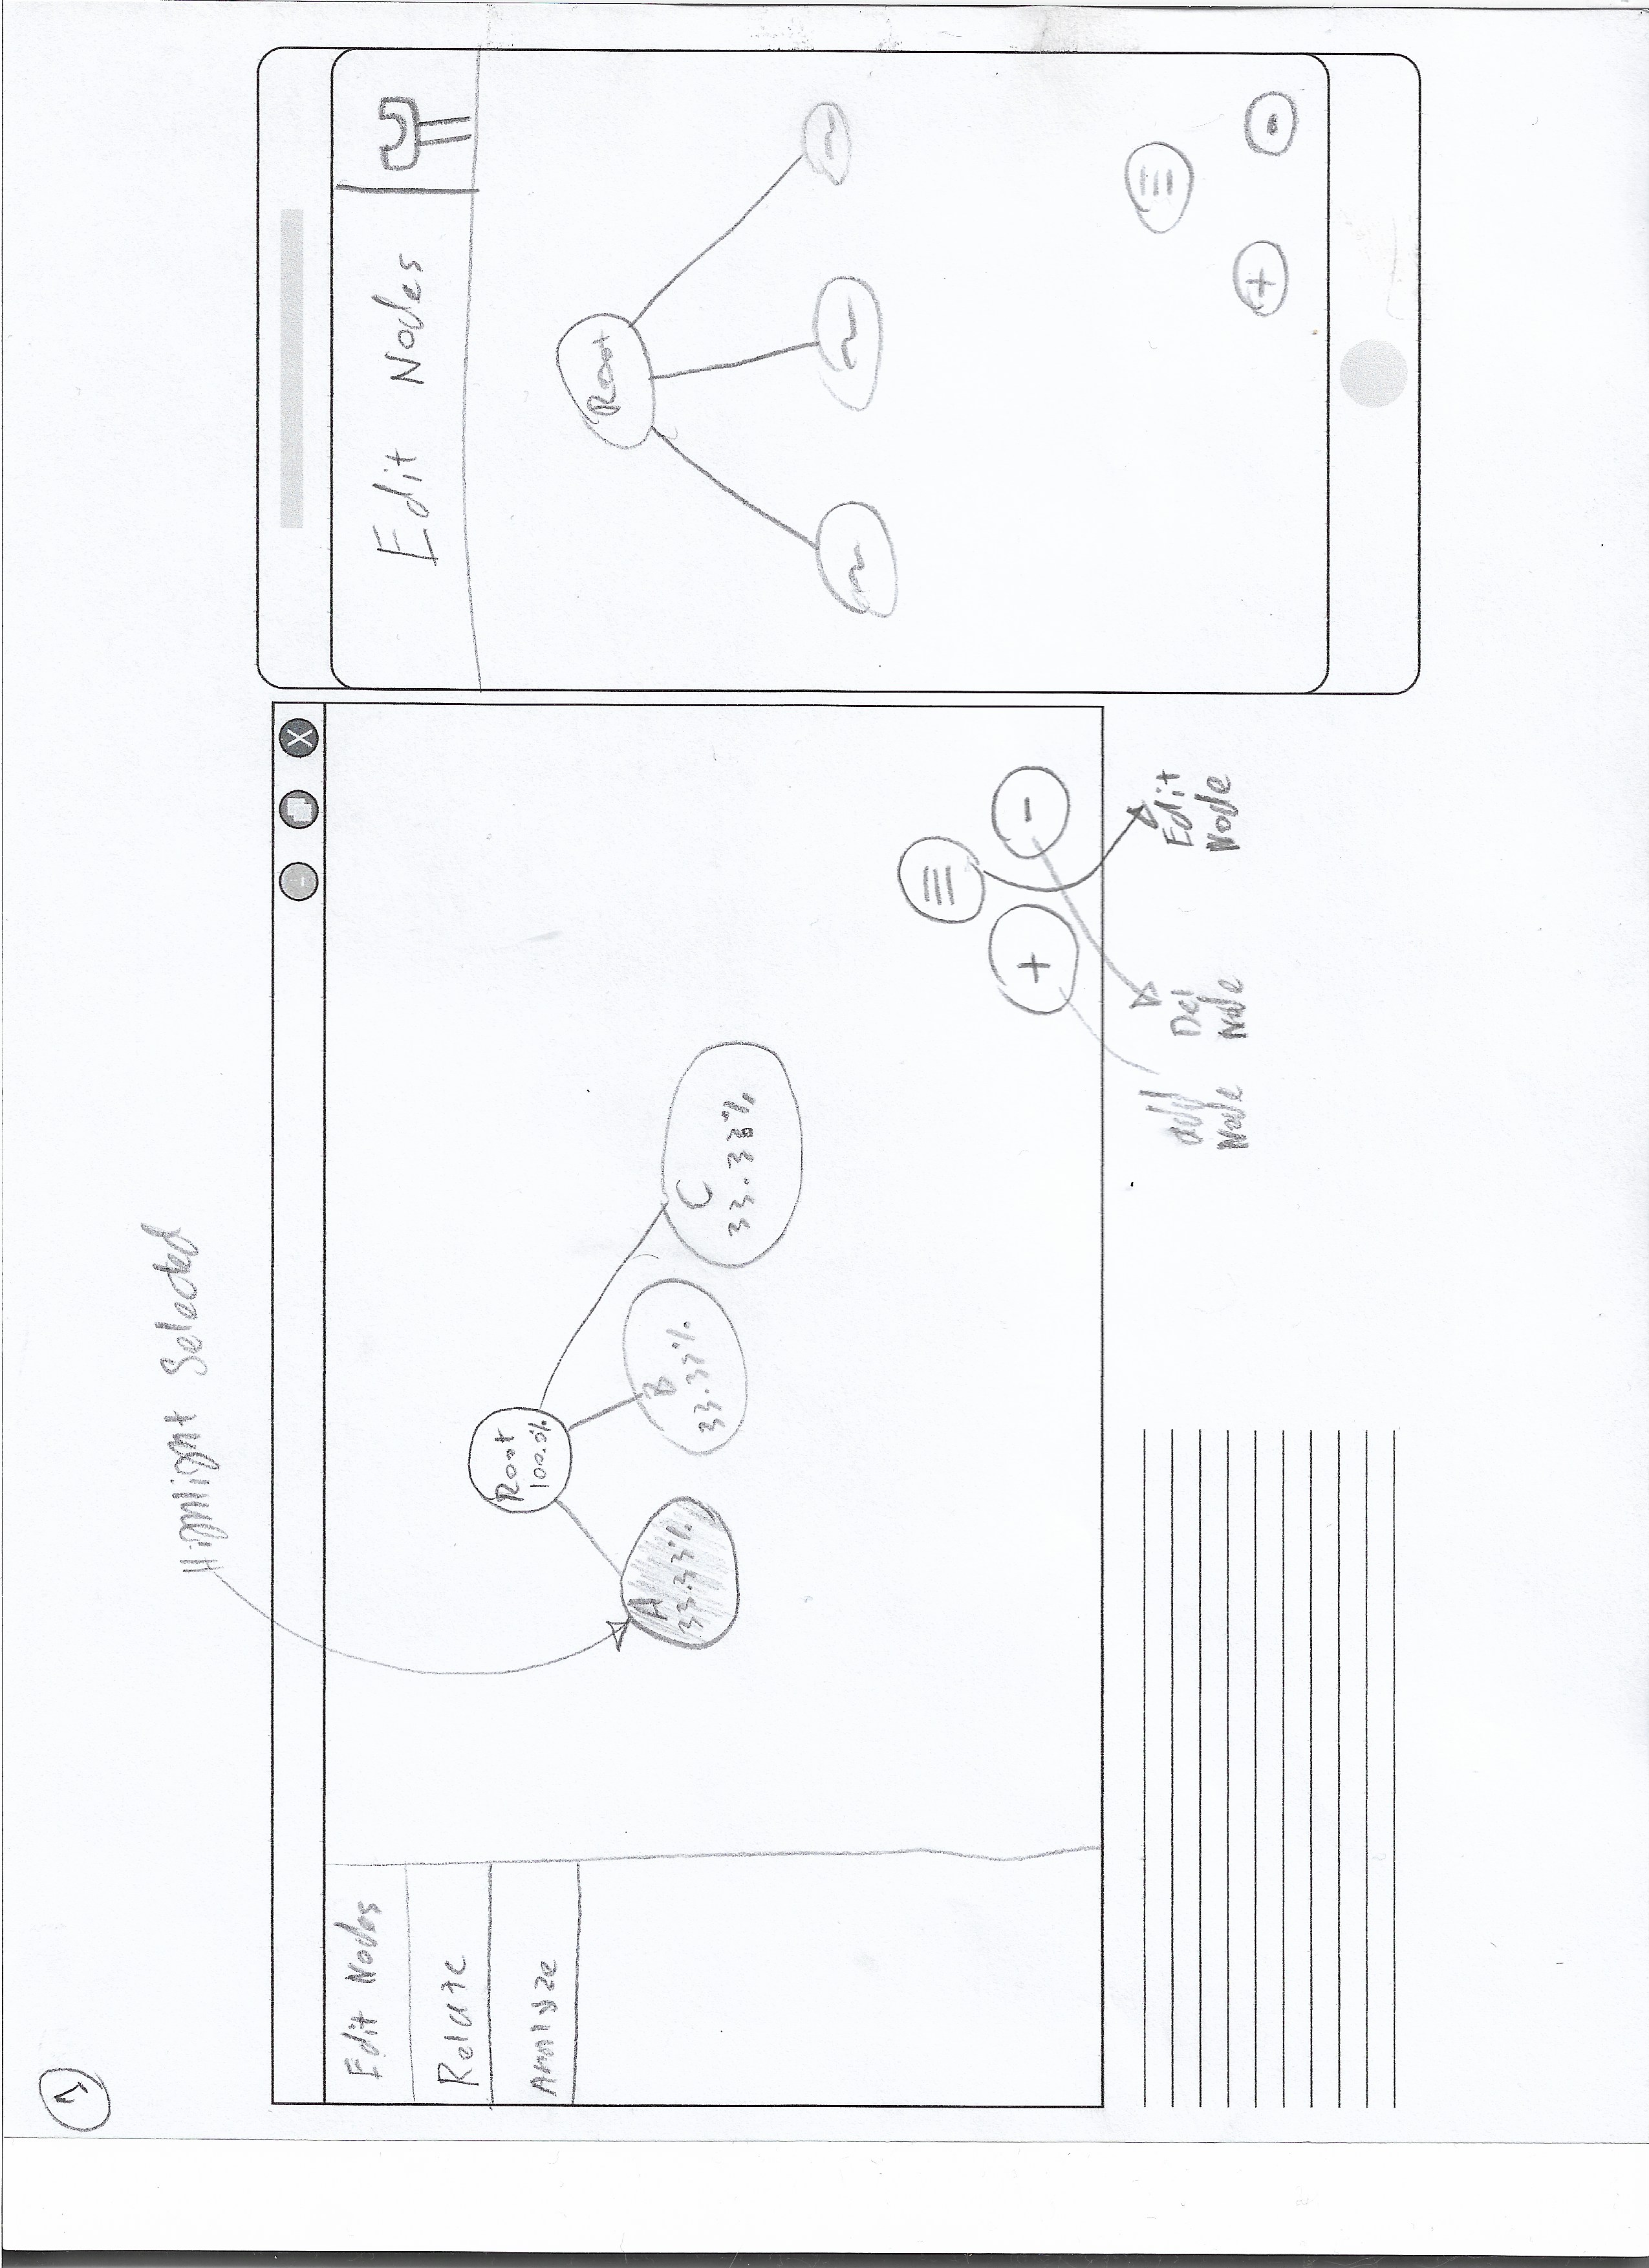 1
Highlight Selected
X
Edit Nodes
Relate
Analyze
Root
100.0%
A
33.33%
B
33.33%
C
33.33%
+
-
add
Node
Del
Node
Edit
Node
Edit Nodes
Root
+
-